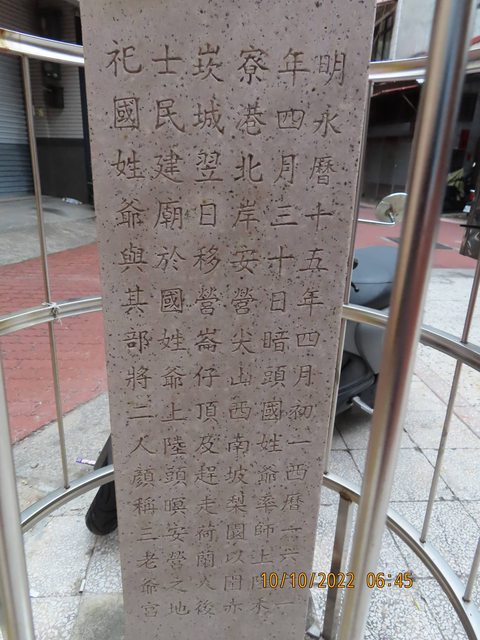 明永曆十五年四月初一西曆一六六一
年四月三十日暗頭國姓爺率師上陸禾
寮港北岸安營尖山西南坡梨園以赤
崁城翌日移營崙仔頂及趕走荷蘭人後
士民建廟於國姓爺上陸頭暝安營之地
祀國姓爺與其部將二人顏稱三老爺宮
10/10/2022 06:45